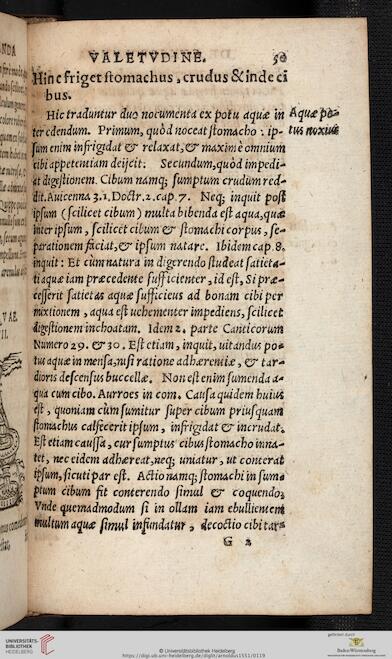 VALETVDINE. 50
Hinc friget stomachus, crudus & inde ci
bus.
Hic traduntur duo nocumenta ex potu aquæ in
ter edendum. Primum, quòd noceat stomacho : ip-
sum enim infrigidat & relaxat, & maximè omnium
cibi appetentiam deijcit: Secundum, quòd impedi-
at digestionem. Cibum namq; sumptum crudum red-
dit. Auicenna 3.1. Doctr. 2. cap. 7. Neq; inquit post
ipsum (scilicet cibum) multa bibenda est aqua, quæ
inter ipsum, scilicet cibum & stomachi corpus, se-
parationem faciat, & ipsum natare. Ibidem cap. 8.
inquit : Et cùm natura in digerendo studeat satieta-
ti aquæ iam præcedente sufficienter, id est, Si præ-
cesserit satietas aquæ sufficieus ad bonam cibi per
mixtionem, aqua est uehementer impediens, scilicet
digestionem inchoatam. Idem 2. parte Canticorum
Numero 29. & 30. Est etiam, inquit, uitandus po-
tus aquæ in mensa, nisi ratione adhæremiæ, & tar-
dioris descensus buccellæ. Non est enim sumenda a-
qua cum cibo. Aurroes in com. Causa quidem huius
est, quoniam cùm sumitur super cibum priusquam
stomachus calfecerit ipsum, infrigidat & incrudat.
Est etiam caussa, cur sumptus cibus stomacho inna-
tet, nec eidem adhæreat, neq; uniatur, ut conterat
ipsum, sicuti par est. Actio namq; stomachi in sum-
ptum cibum fit conterendo simul & coquendo;
Vnde quemadmodum si in ollam iam ebullientem
multum aquæ simul infundatur, decoctio cibi tar-
G 2
Aquæ po-
tus noxius
UNIVERSITÄTS-
BIBLIOTHEK
HEIDELBERG
https://digi.ub.uni-heidelberg.de/diglit/arnoldus1551/0119
© Universitätsbibliothek Heidelberg
gefördert durch
Baden-Württemberg